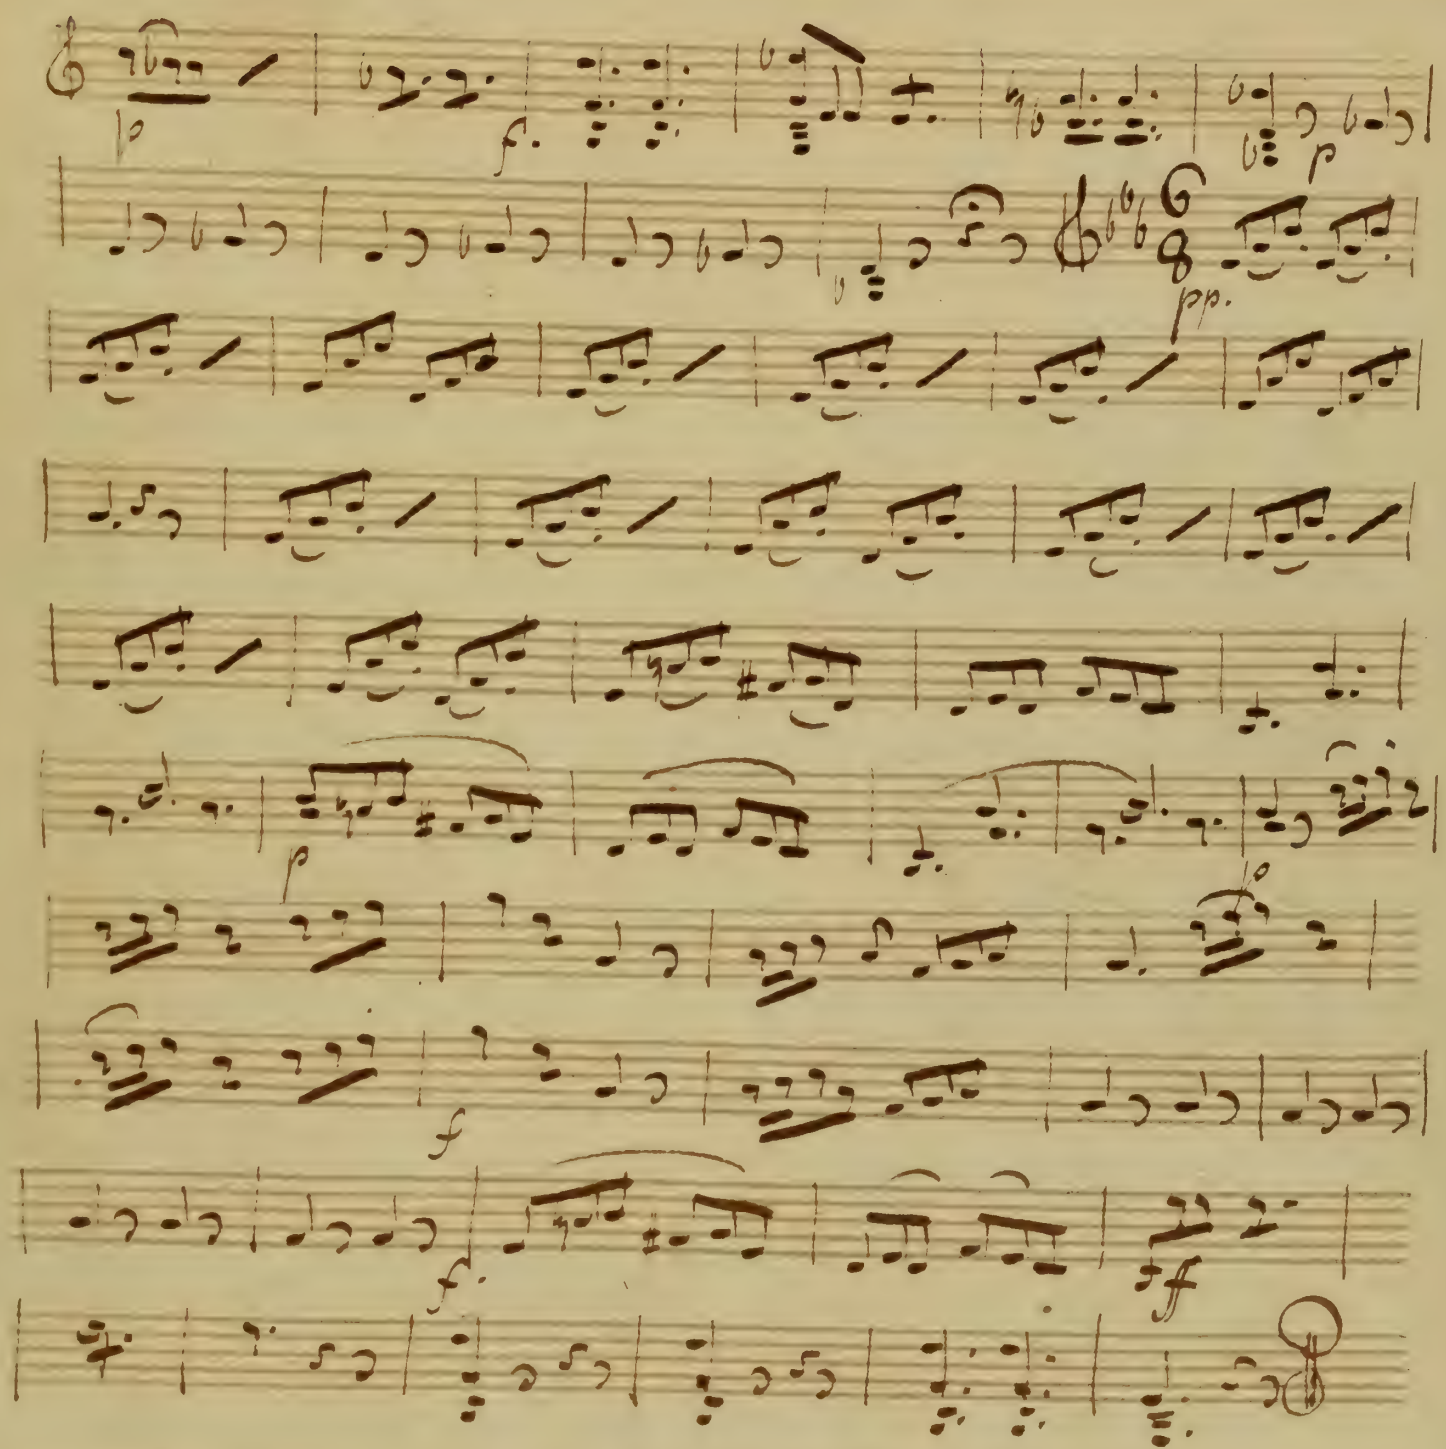 p f.
p
6
8
pp.
p
p
f
f. ff